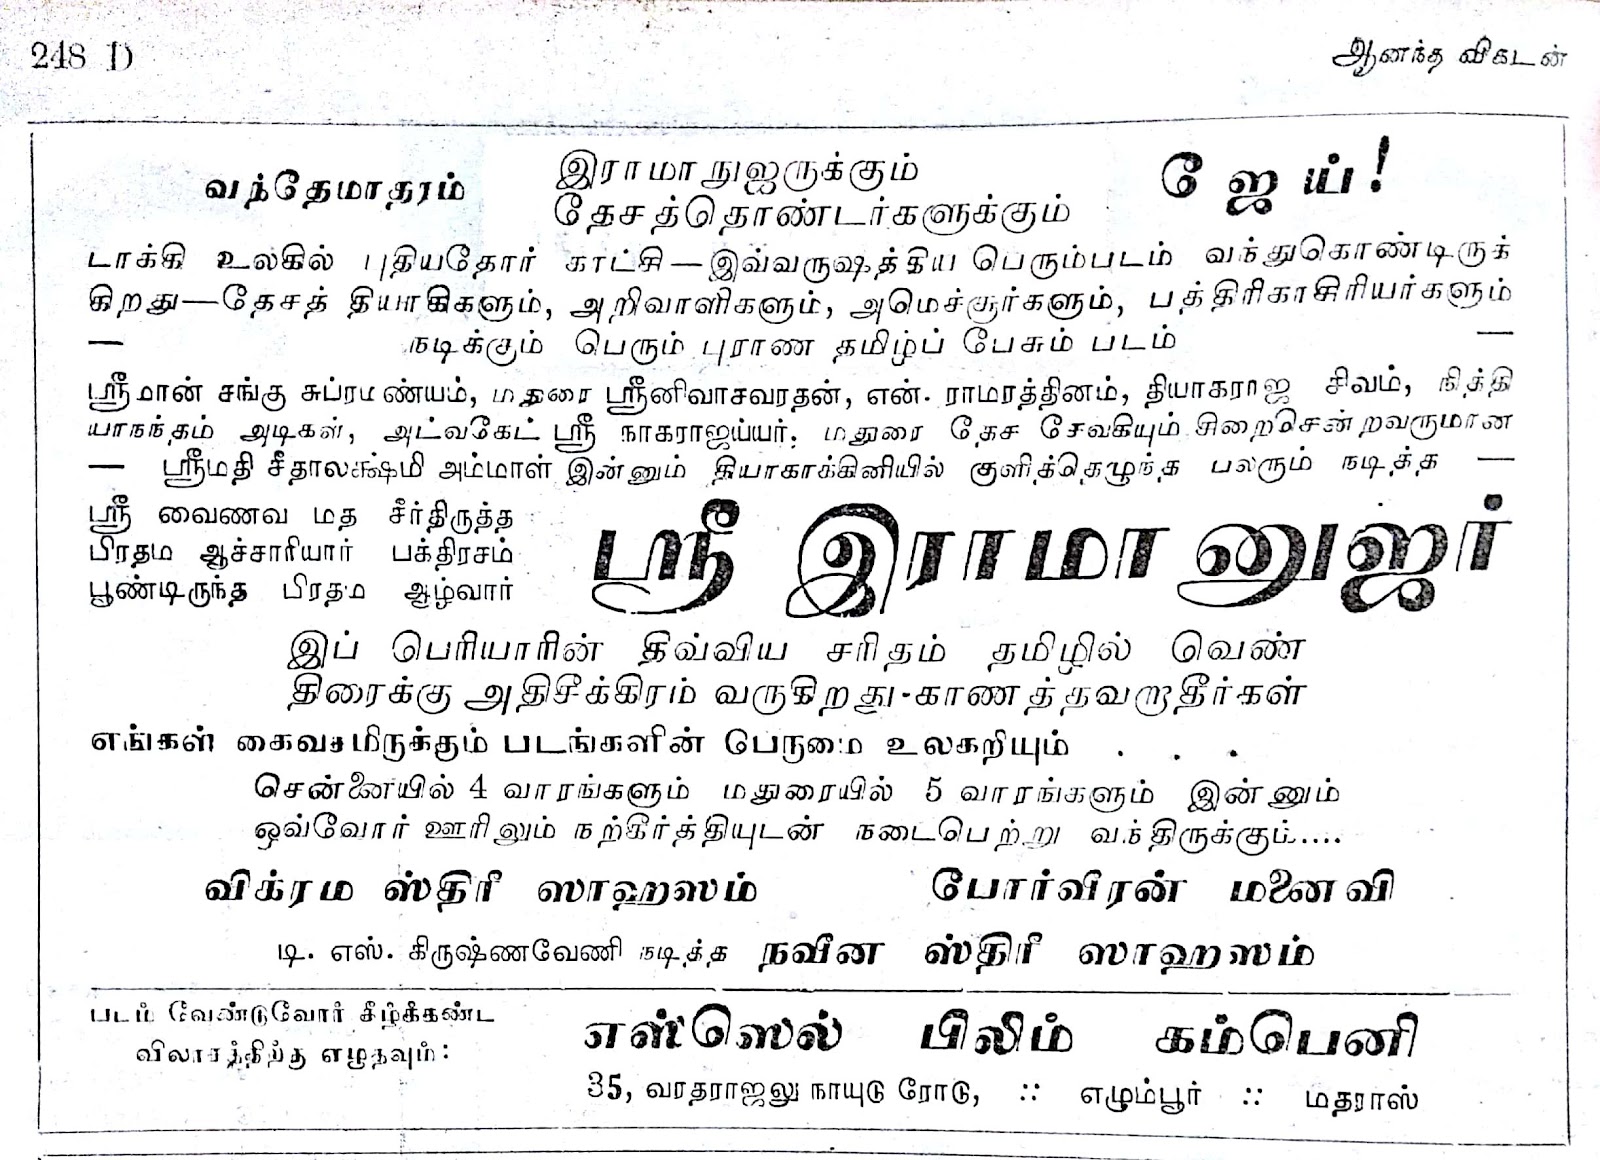 248 D
ஆனந்த விகடன்
வந்தேமாதரம்
இராமாநுஜருக்கும்
தேசத்தொண்டர்களுக்கும்
ஜேய்!
டாக்கி உலகில் புதியதோர் காட்சி—இவ்வருஷத்திய பெரும்படம் வந்துகொண்டிருக்
கிறது—தேசத் தியாகிகளும், அறிவாளிகளும், அமெச்சூர்களும், பத்திரிகாசிரியர்களும்
— நடிக்கும் பெரும் புராண தமிழ்ப் பேசும் படம் —
ஸ்ரீமான் சங்கு சுப்ரமண்யம், மதுரை ஸ்ரீனிவாசவரதன், என். ராமரத்தினம், தியாகராஜ சிவம், நித்தி
யாநந்தம் அடிகள், அட்வகேட் ஸ்ரீ நாகராஜய்யர், மதுரை தேச சேவகியும் சிறைசென்றவருமான
— ஸ்ரீமதி சீதாலக்ஷ்மி அம்மாள் இன்னும் தியாகாக்கினியில் குளித்தெழுந்த பலரும் நடித்த —
ஸ்ரீ வைணவ மத சீர்திருத்த
பிரதம ஆச்சாரியார் பக்திரசம்
பூண்டிருந்த பிரதம ஆழ்வார்
ஸ்ரீ இராமானுஜர்
இப் பெரியாரின் திவ்விய சரிதம் தமிழில் வெண்
திரைக்கு அதிசீக்கிரம் வருகிறது-காணத்தவறாதீர்கள்
எங்கள் கைவசமிருக்கும் படங்களின் பேருமை உலகறியும் . . .
சென்னையில் 4 வாரங்களும் மதுரையில் 5 வாரங்களும் இன்னும்
ஒவ்வோர் ஊரிலும் நற்கீர்த்தியுடன் நடைபெற்று வந்திருக்கும்....
விக்ரம ஸ்திரீ ஸாஹஸம்
போர்வீரன் மனைவி
டி. எஸ். கிருஷ்ணவேணி நடித்த நவீன ஸ்திரீ ஸாஹஸம்
படம் வேண்டுவோர் கீழ்க்கண்ட
விலாசத்திற்கு எழுதவும்:
எஸ்ஸெல் பிலிம் கம்பெனி
35, வரதராஜலு நாயுடு ரோடு, :: எழும்பூர் :: மதராஸ்